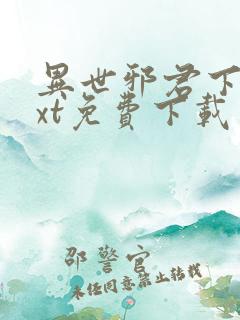 異世邪君下
xt免費下載
邵警官
未经同意禁止转载